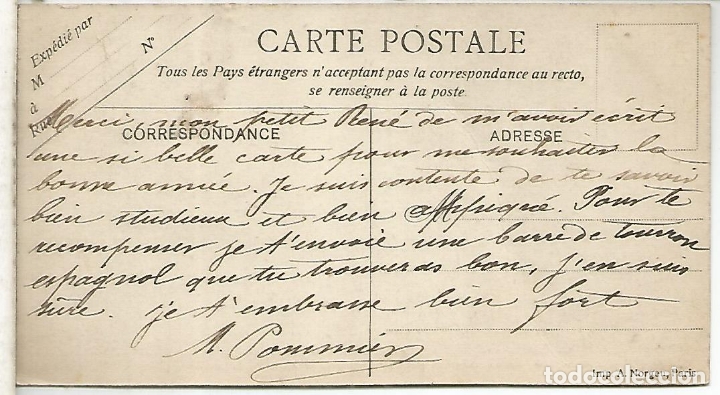 Expédié par
M
à
Rue
N°
CARTE POSTALE
Tous les Pays étrangers n'acceptant pas la correspondance au recto,
se renseigner à la poste.
CORRESPONDANCE
ADRESSE
Merci, mon petit René de m'avoir écrit
une si belle carte pour me souhaiter la
bonne année. Je suis contente de te savoir
bien studieux et bien appliqué. Pour te
recompenser je t'envoie une barre de touron
espagnol que tu trouveras bon, j'en suis
sûre. je t'embrasse bien fort
M. Pommier
Imp. A. Paris
todocoleccion